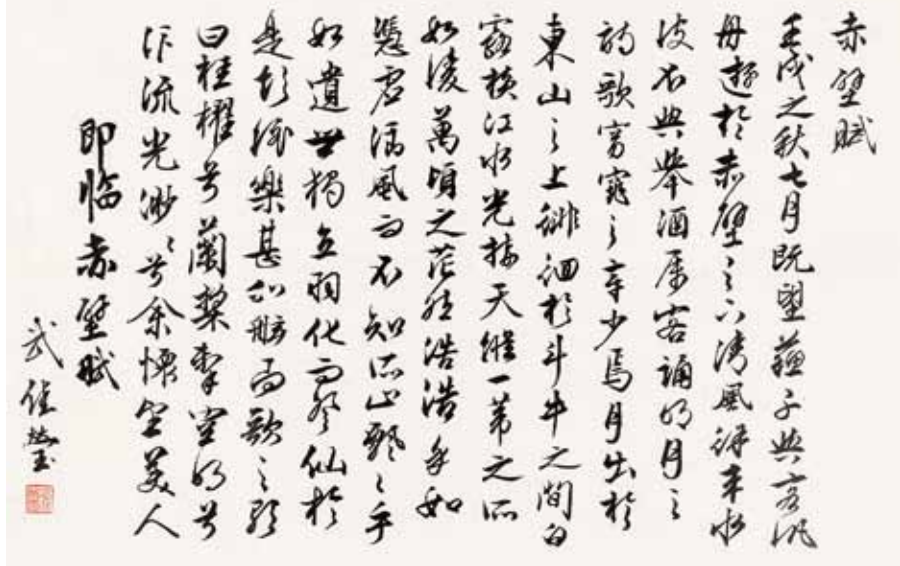 赤壁賦
壬戌之秋七月既望蘇子與客汎
舟遊於赤壁之下清風徐來水
波不興舉酒屬客誦明月之
詩歌窈窕之章少焉月出於
東山之上徘徊於斗牛之間白
露橫江水光接天縱一葦之所
如凌萬頃之茫然浩浩乎如
憑虛御風而不知所止飄〻乎
如遺世獨立羽化而登仙於
是飲酒樂甚扣舷而歌之歌
曰桂櫂兮蘭槳擊空明兮
泝流光渺〻兮余懷望美人
即临赤壁賦
武